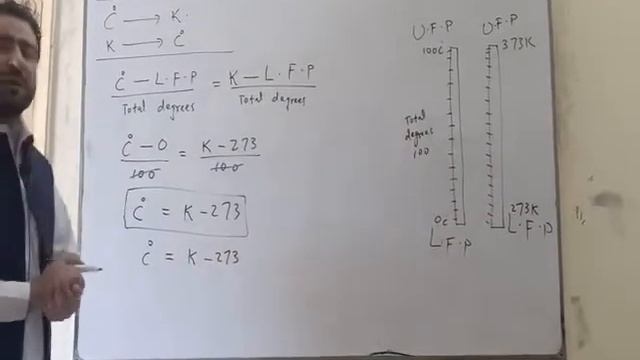 C° → K.
K → C°
C° - L.F.P / Total degrees = K - L.F.P / Total degrees
C° - 0 / 100 = K - 273 / 100
C° = K - 273
C° = K - 273
U.F.P U.F.P
100c° 373K
Total
degrees
100
0c 273K
L.F.P L.F.P